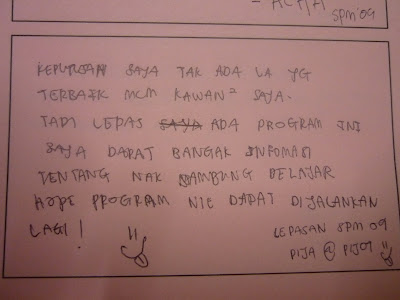 SPM'09
KEPUTUSAN SAYA TAK ADA LA YG
TERBAIK MCM KAWAN² SAYA.
TADI LEPAS SAYA ADA PROGRAM INI
SAYA DAPAT BANGAK INFOMASI
TENTANG NAK SAMBUNG BELAJAR
HOPE PROGRAM NIE DAPAT DIJALANKAN
LAGI!
LEPASAN SPM 09
PIJA @ PIJOT